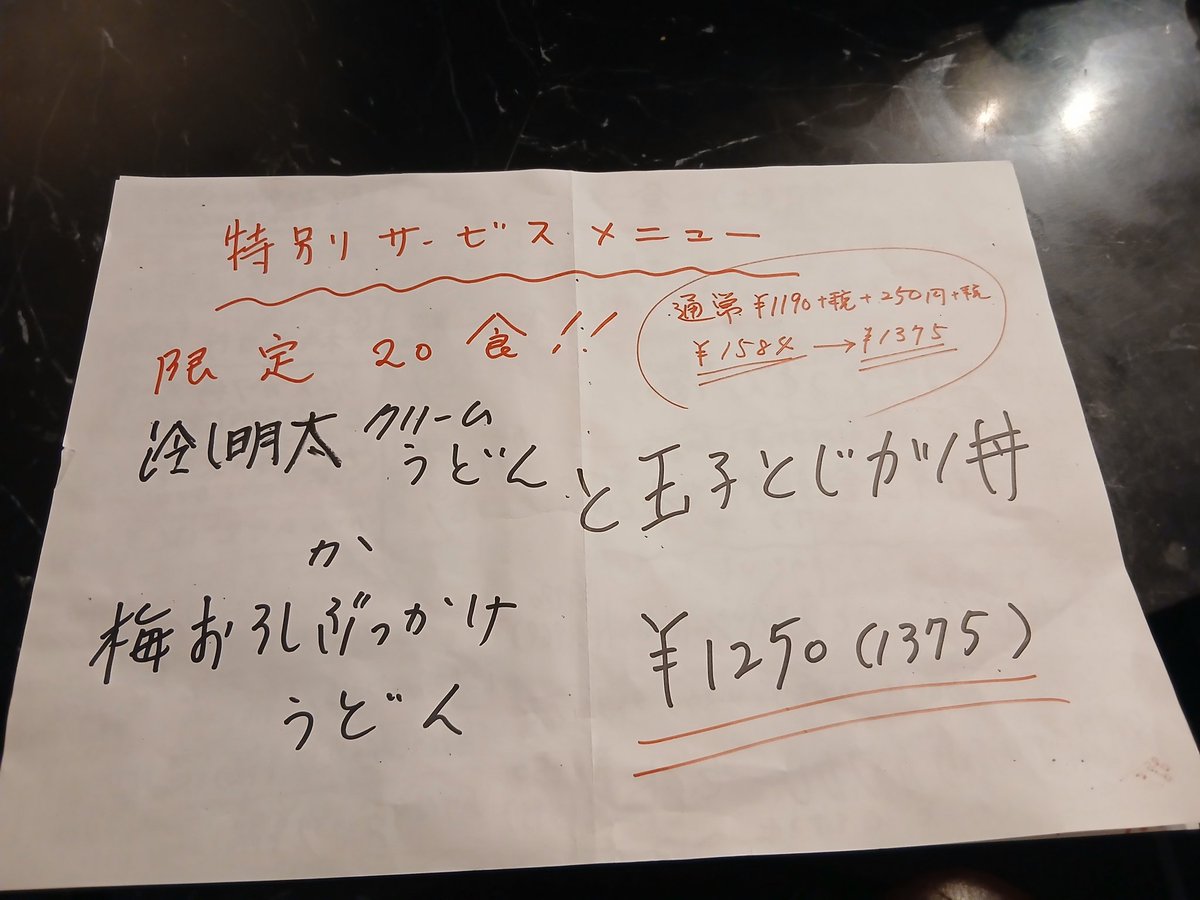 特別サービスメニュー
限定 20食!!
通常¥1190+税+250円+税
¥1584→¥1375
冷し明太クリームうどん
と玉子とじガリ丼
か
梅おろしぶっかけ
うどん
¥1250(1375)